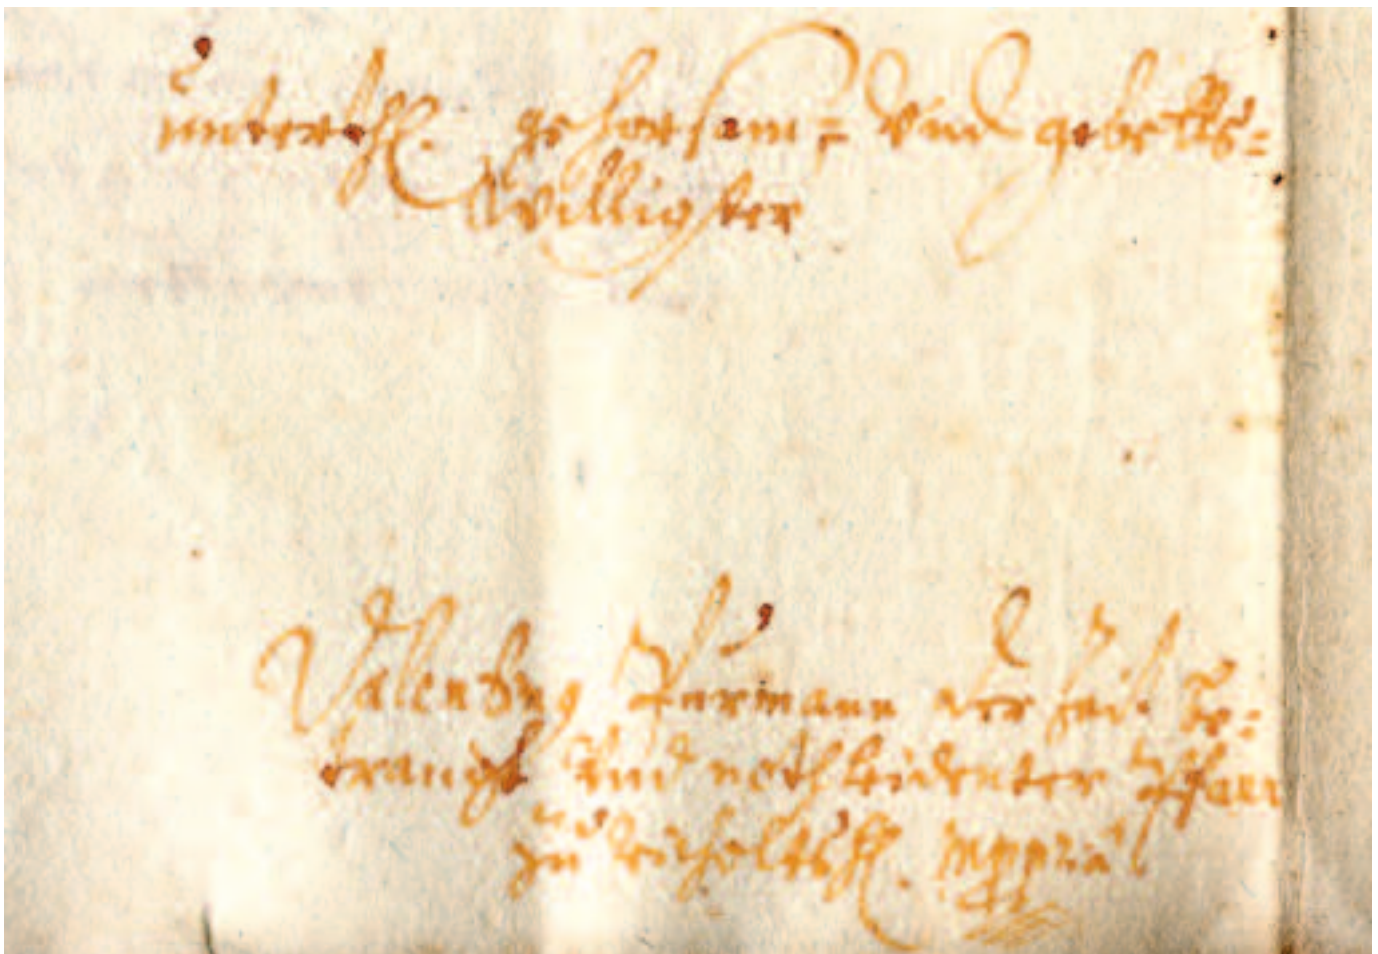 unterth. gehorsam= Vnd gebetts=
Williger
Valenting Furmann der Zeit be=
trangt Vnd nothleidenter Pfarr
zu mppria